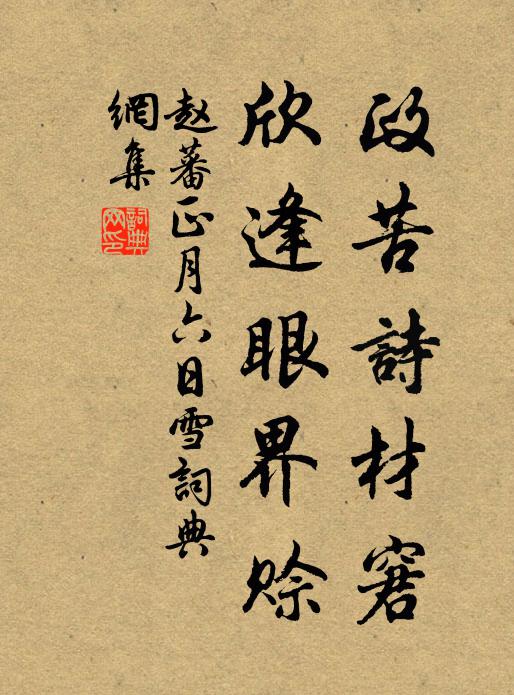 政苦詩材窘
欣逢眼界赊
赵蕃正月六日雪詞典
網集
詞典网印